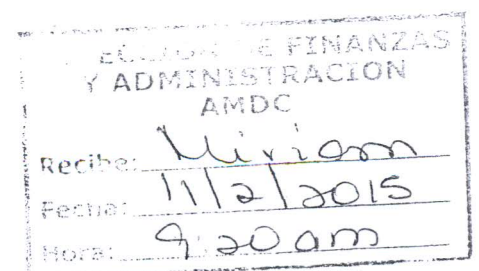 DE FINANZAS
Y ADMINISTRACION
AMDC
Recibe: Miriam
Fecha: 11/2/2015
Hora: 9:20 am